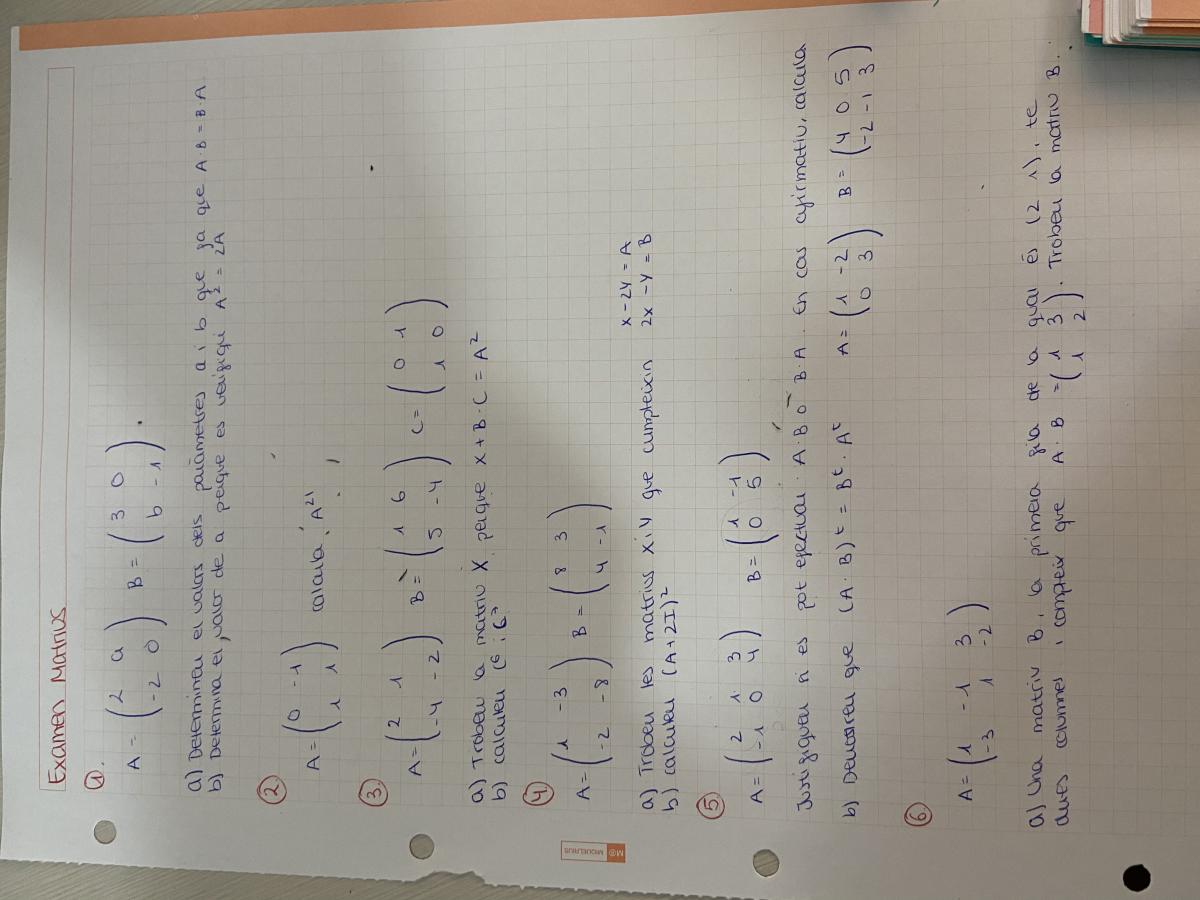 Examen Matrius
1.
A = (2 a
-2 0) B = (3 0
b -1).
a) Determineu el valors dels paràmetres a i b que fa que A·B = B·A
b) Determina el valor de a perquè es verifiqui A² = 2A
2
A = (0 -1
1 1) calcula A²¹
3.
A = (2 1
-4 -2) B = (1 6
5 -4) C = (0 1
1 0)
a) Trobeu la matriu X perque X + B·C = A²
b) calculeu C⁶ i 6⁷
4
A = (1 -3
-2 -8) B = (8 3
4 -1)
a) Trobeu les matrius X i Y que cumpleixin x - 2Y = A
2x - Y = B
b) calculeu (A + 2I)²
5
A = (2 1 3
-1 0 4) B = (1 -1
0 5)
Justifiqueu si es pot efectuar A·B o B·A. En cas afirmatiu, calcula
b) Demostreu que (A·B)ᵗ = Bᵗ·Aᵗ A = (1 -2
0 3) B = (4 0 5
-2 -1 3)
6
A = (1 -1 3
-3 1 -2)
a) Una matriu B, la primera fila de la qual és (2 1), te
dues columnes i compleix que A·B = (1 3
1 2). Trobeu la matriu B.
M® MIQUELRIUS